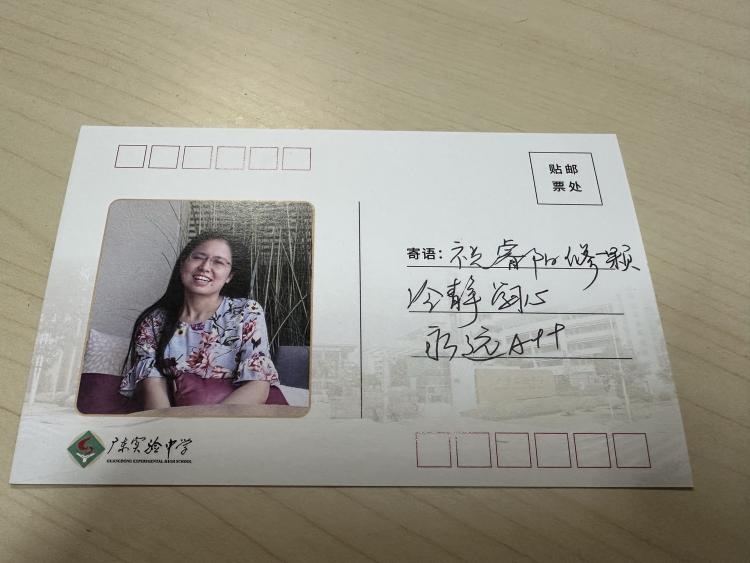 贴邮
票处
寄语：祝睿阳修一颗
冷静细心
永远A++
广东实验中学
GUANGDONG EXPERIMENTAL HIGH SCHOOL